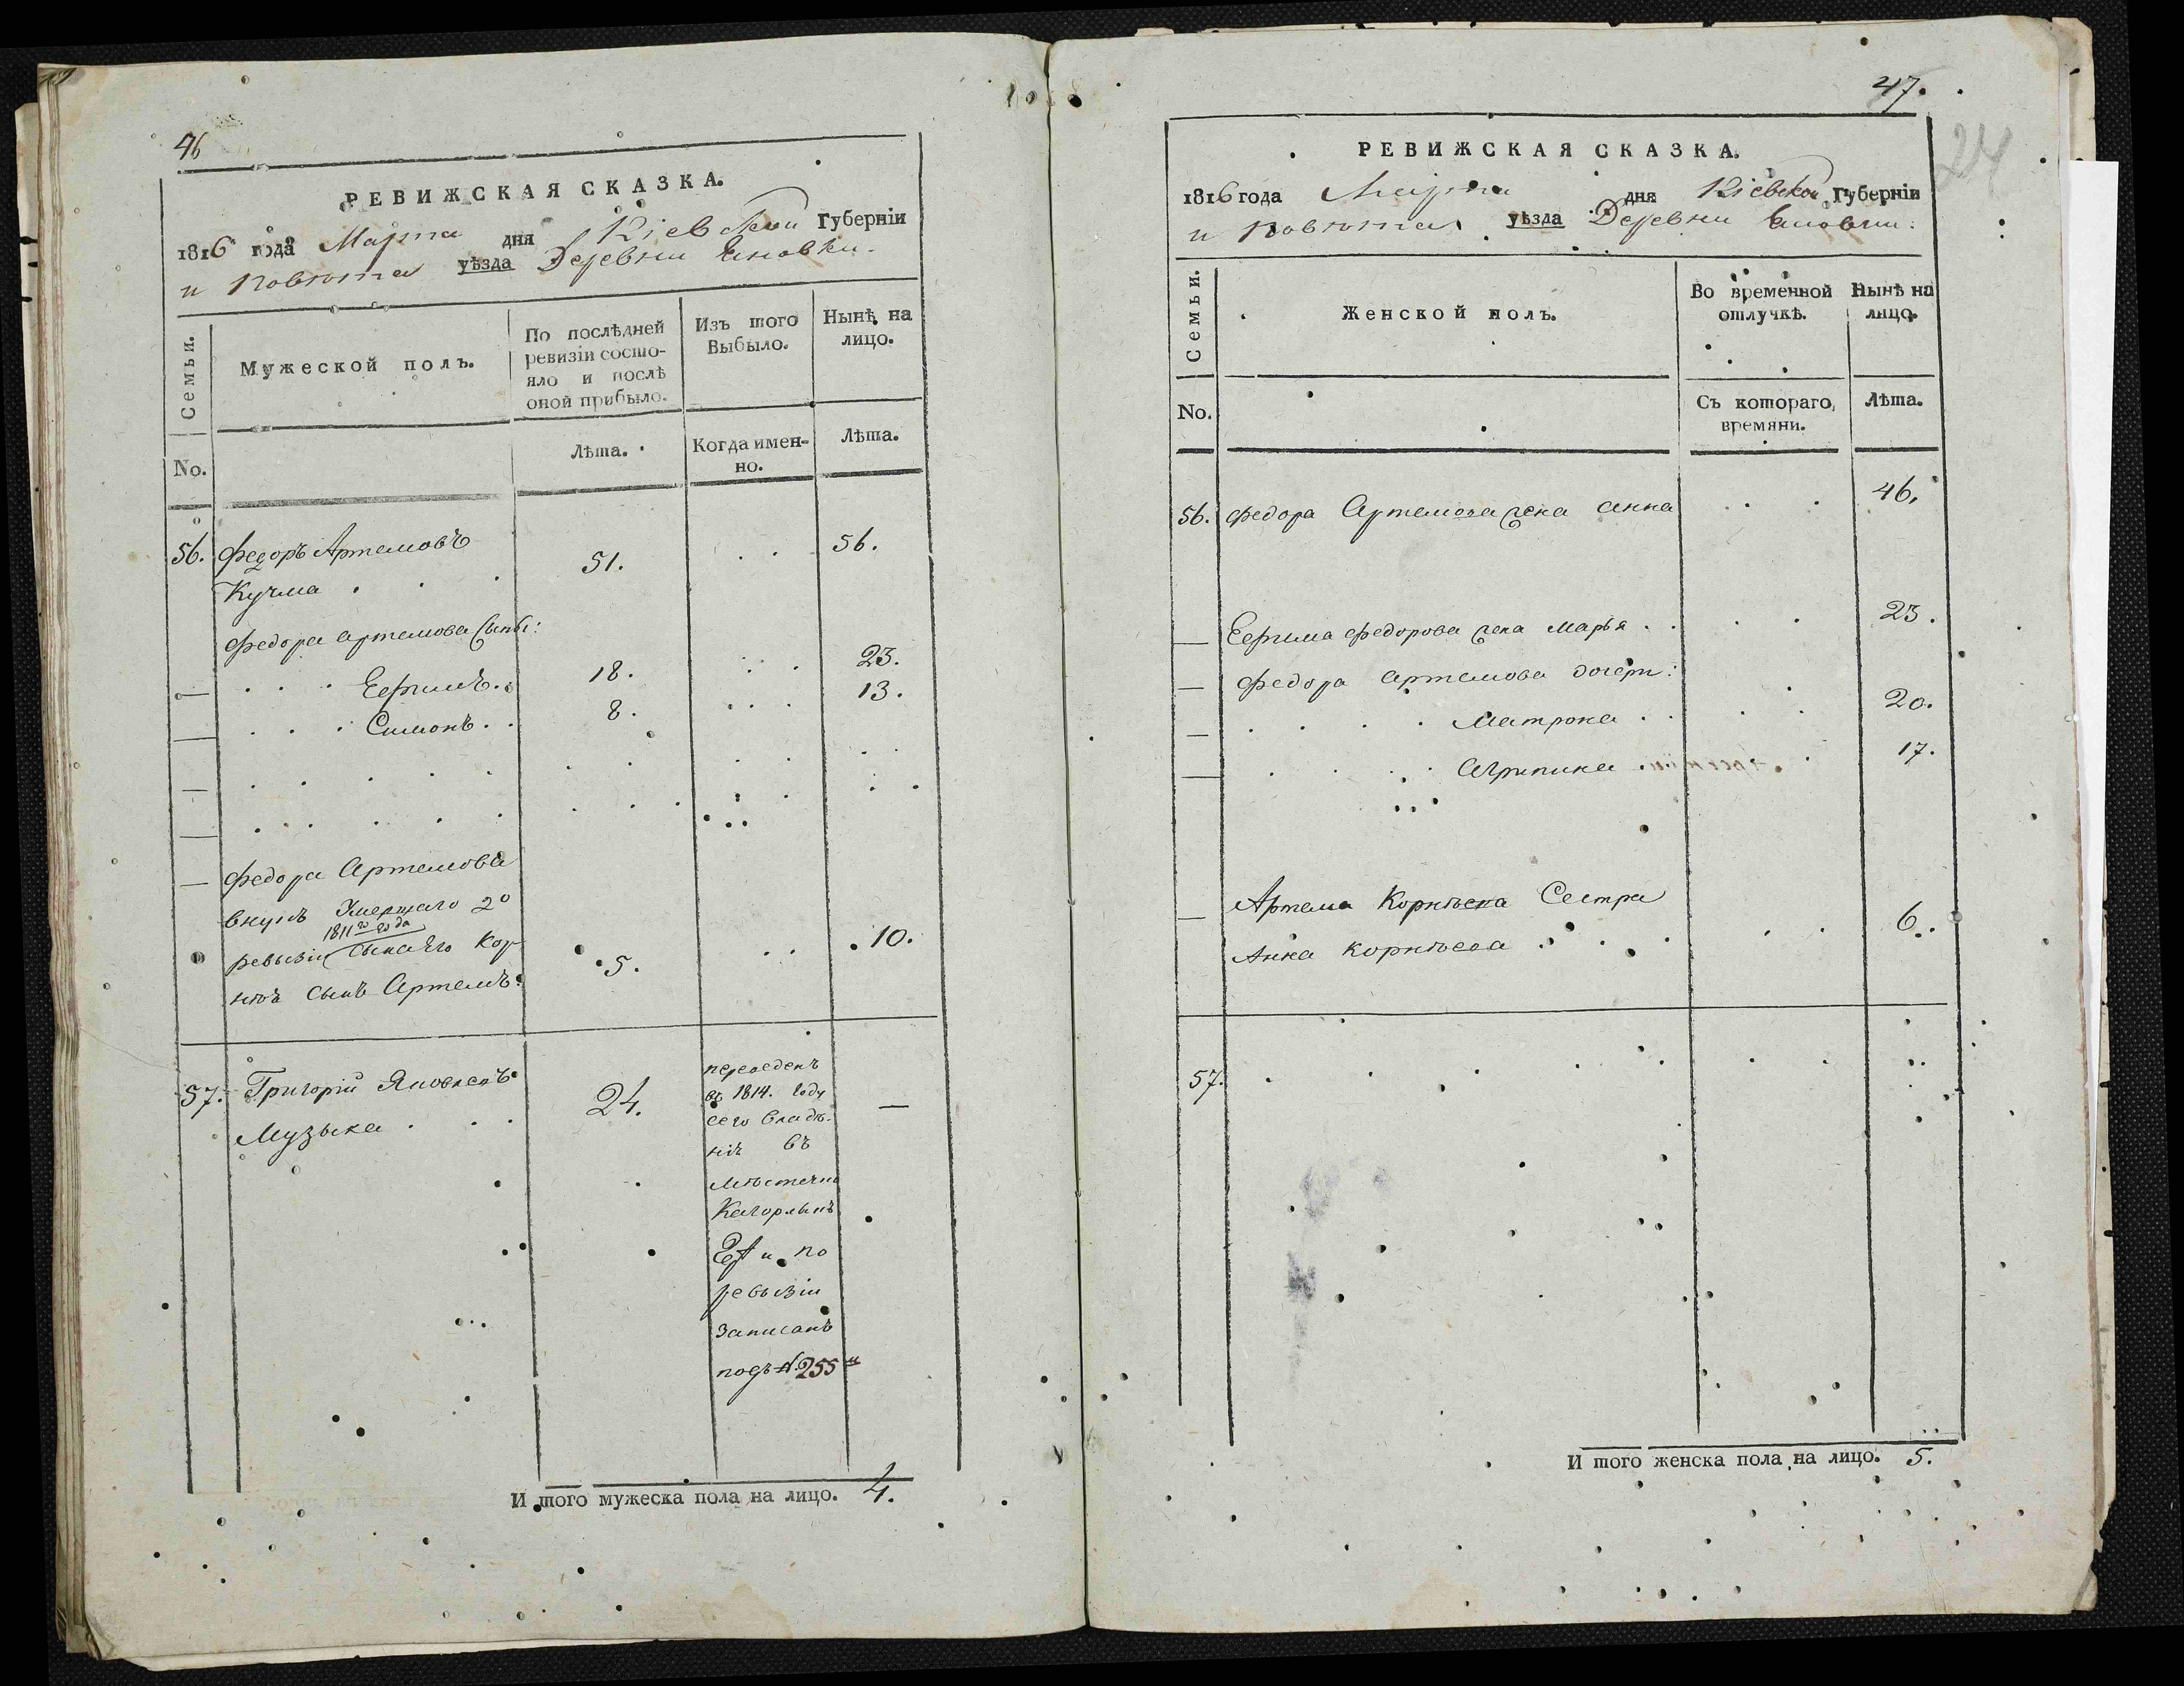 46
РЕВИЖСКАЯ СКАЗКА.
1816 года Марта дня Кіевской Губерніи
и повѣта уѣзда Деревни Яновки.
Семьи.
Мужеской полъ.
По послѣдней
ревизіи состо-
яло и послѣ
оной прибыло.
Изъ того
Выбыло.
Нынѣ на
лицо.
No.
Лѣта.
Когда имен-
но.
Лѣта.
56. Федоръ Артемовъ
Кучма 51. 56.
Федора Артемова Сыны:
— Ефимъ 18. 23.
— Симонъ 8. 13.
—
—
— Федора Артемова
внукъ Умершаго 2º
1811го года
ревизіи Сына его Кор
нѣя Сынъ Артемъ 5. 10.
57. Григорій Яковлевъ
Музыка 24. —
переведенъ
въ 1814. году
сего владѣ-
нія въ
мѣстечко
Кагорлыкъ
и по
ревизіи
записанъ
подъ N.255м
И того мужеска пола на лицо. 4.
47.
24
РЕВИЖСКАЯ СКАЗКА.
1816 года Марта дня Кіевской Губерніи
и повѣта уѣзда Деревни Яновки.
Семьи.
Женской полъ.
Во временной
отлучкѣ.
Нынѣ на
лицо.
No.
Съ котораго
времяни.
Лѣта.
56. Федора Артемова жена Анна 46.
— Ефима Федорова жена Марья 23.
— Федора Артемова дочери:
— Матрона 20.
— Агрипина 17.
— Артема Корнѣева Сестра
Анна Корнѣева 6.
57.
И того женска пола на лицо. 5.